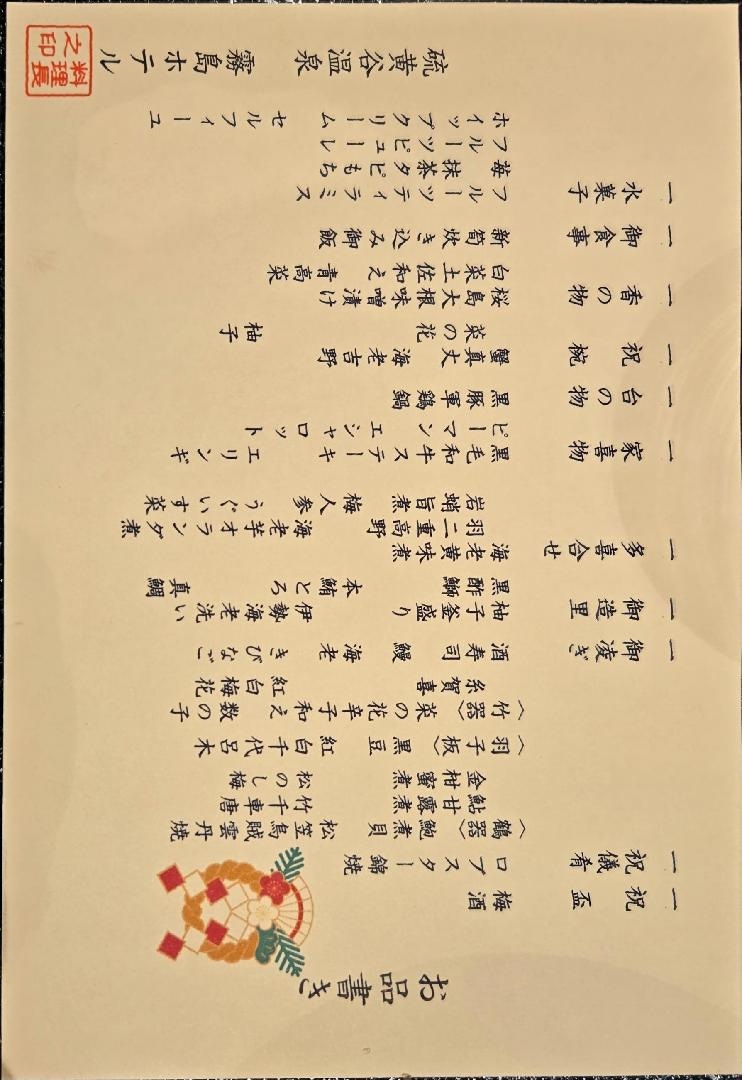 お品書き
一 祝盃 梅酒
一 祝儀肴 ロブスター錦焼
〈鶴器〉 鮑煮貝 松笠烏賊雲丹焼
鮎甘露煮 竹千車唐
金柑蜜煮 松のし梅
〈羽子板〉 黒豆 紅白千代呂木
〈竹器〉 菜の花辛子和え 数の子
糸賀喜 紅白梅花
一 御凌ぎ 酒寿司 鰻 海老 きびなご
一 御造里 柚子釜盛り 伊勢海老洗い
黒酢鰤 本鮪とろ 真鯛
一 多喜合せ 海老黄味煮
羽二重高野 海老芋オランダ煮
岩蛸旨煮 梅人参 うぐいす菜
一 家喜物 黒毛和牛ステーキ エリンギ
ピーマン エシャロット
一 台の物 黒豚軍鶏鍋
一 祝椀 蟹真丈 海老吉野
菜の花 柚子
一 香の物 桜島大根味噌漬け
白菜土佐和え 青高菜
一 御食事 新筍炊き込み御飯
一 水菓子 フルーツティラミス
苺 抹茶タピもち
フルーツピューレ
ホイップクリーム セルフィーユ
硫黄谷温泉 霧島ホテル
料理長之印